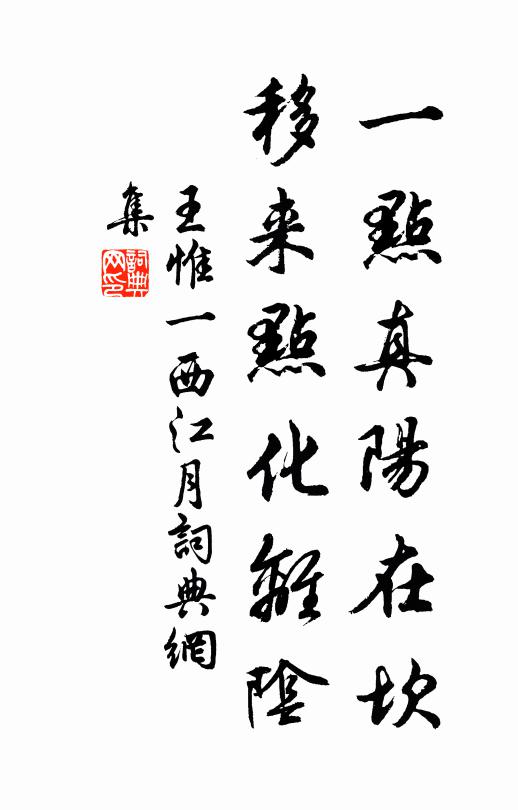 一點真陽在坎
移来點化離陰
王惟一西江月詞典網
集
詞典網印